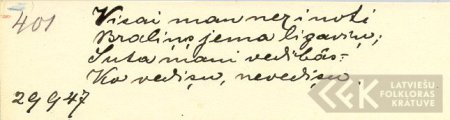 401
Visai man nezinoti
Bralins jema ligaviņu;
Suta mani vedibās:
Ko vedīšu, nevedīšu.
29947
LATVIEŠU
FOLKLORAS
KRĀTUVE